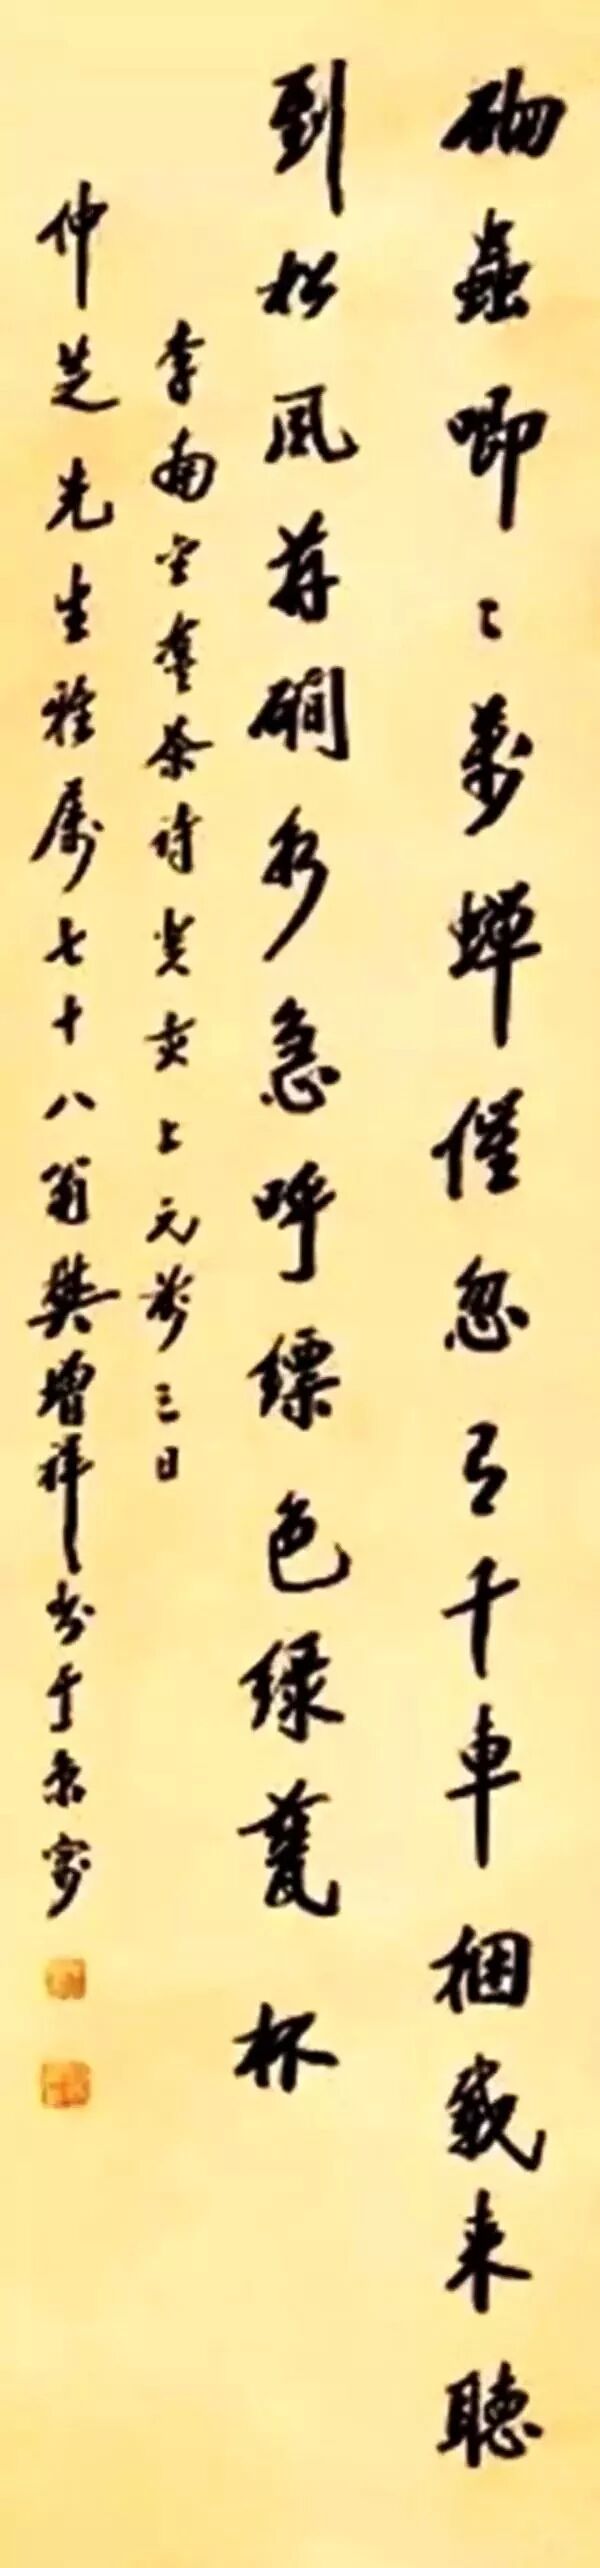 砌蟲唧〻萬蟬催忽有千車捆載來聽
到松風并磵水急呼縹色綠甆杯
李南金茶詩癸亥上元前三日
仲芝先生雅屬七十八翁樊增祥書于京寓